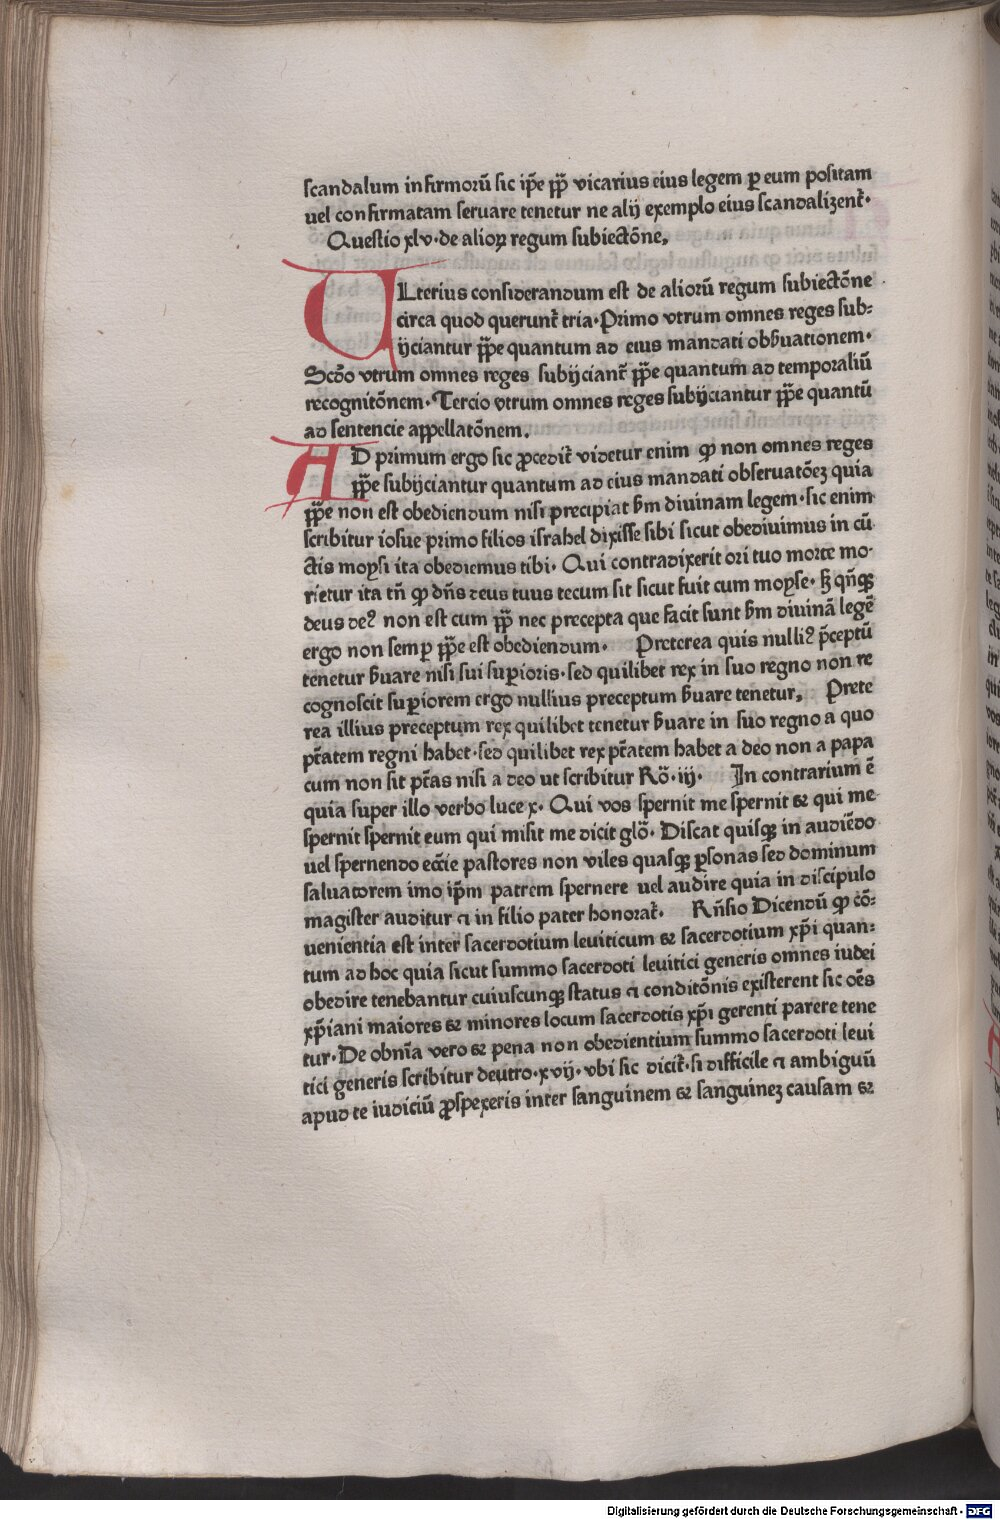 scandalum infirmorū sic ip̄e pp̄ vicarius eius legem ꝑ eum positam
uel confirmatam seruare tenetur ne alij exemplo eius scandalizent̄·
Questio xlv·de alioꝝ regum subiectōne,
ULterius considerandum est de aliorū regum subiectōne
circa quod querunt̄ tria·Primo vtrum omnes reges sub⸗
ijciantur pp̄e quantum ad eius mandati obẜuationem·
Scd̄o vtrum omnes reges subijciant̄ pp̄e quantum ad temporaliū
recognitōnem·Tercio vtrum omnes reges subijciantur pp̄e quantū
ad sentencie appellatōnem.
AD primum ergo sic ꝓcedit̄ videtur enim ꝙ non omnes reges
pp̄e subijciantur quantum ad eius mandati obseruatōeꝫ quia
pp̄e non est obediendum nisi precipiat ẜm diuinam legem·sic enim
scribitur iosue primo filios israhel dixisse sibi sicut obediuimus in cū
ctis moysi ita obediemus tibi· Qui contradixerit ori tuo morte mo·
rietur ita tn̄ ꝙ dn̄s deus tuus tecum sit sicut fuit cum moyse· ſꝫ qn̄qꝫ
deus deꝰ non est cum pp̄ nec precepta que facit sunt ẜm diuinā legē
ergo non semꝑ pp̄e est obediendum· Preterea quis nulliꝰ p̄ceptū
tenetur ẜuare nisi sui suꝑioris·sed quilibet rex in suo regno non re
cognoscit suꝑiorem ergo nullius preceptum ẜuare tenetur, Prete
rea illius preceptum rex quilibet tenetur ẜuare in suo regno a quo
pt̄atem regni habet·sed quilibet rex pt̄atem habet a deo non a papa
cum non sit pt̄as nisi a deo ut scribitur Rō·iij· In contrarium ē
quia super illo verbo luce x· Qui vos spernit me spernit ⁊ qui me
spernit spernit eum qui misit me dicit glō· Discat quisqꝫ in audiēdo
uel spernendo ecc̄ie pastores non viles quasqꝫ ꝑsonas sed dominum
saluatorem imo ip̄m patrem spernere uel audire quia in discipulo
magister auditur ⁊ in filio pater honorat̄· Rn̄sio Dicendū ꝙ cō⸗
uenientia est inter sacerdotium leuiticum ⁊ sacerdotium xp̄i quan⸗
tum ad hoc quia sicut summo sacerdoti leuitici generis omnes iudei
obedire tenebantur cuiuscunqꝫ status ⁊ conditōnis existerent sic oēs
xp̄iani maiores ⁊ minores locum sacerdotis xp̄i gerenti parere tene
tur·De obn̄ia vero ⁊ pena non obedientium summo sacerdoti leui
tici generis scribitur deutro·xvij·vbi sic dicit̄·si difficile ⁊ ambiguū
apud te iudiciū ꝓspexeris inter sanguinem ⁊ sanguineꝫ causam ⁊
Digitalisierung gefördert durch die Deutsche Forschungsgemeinschaft - DFG